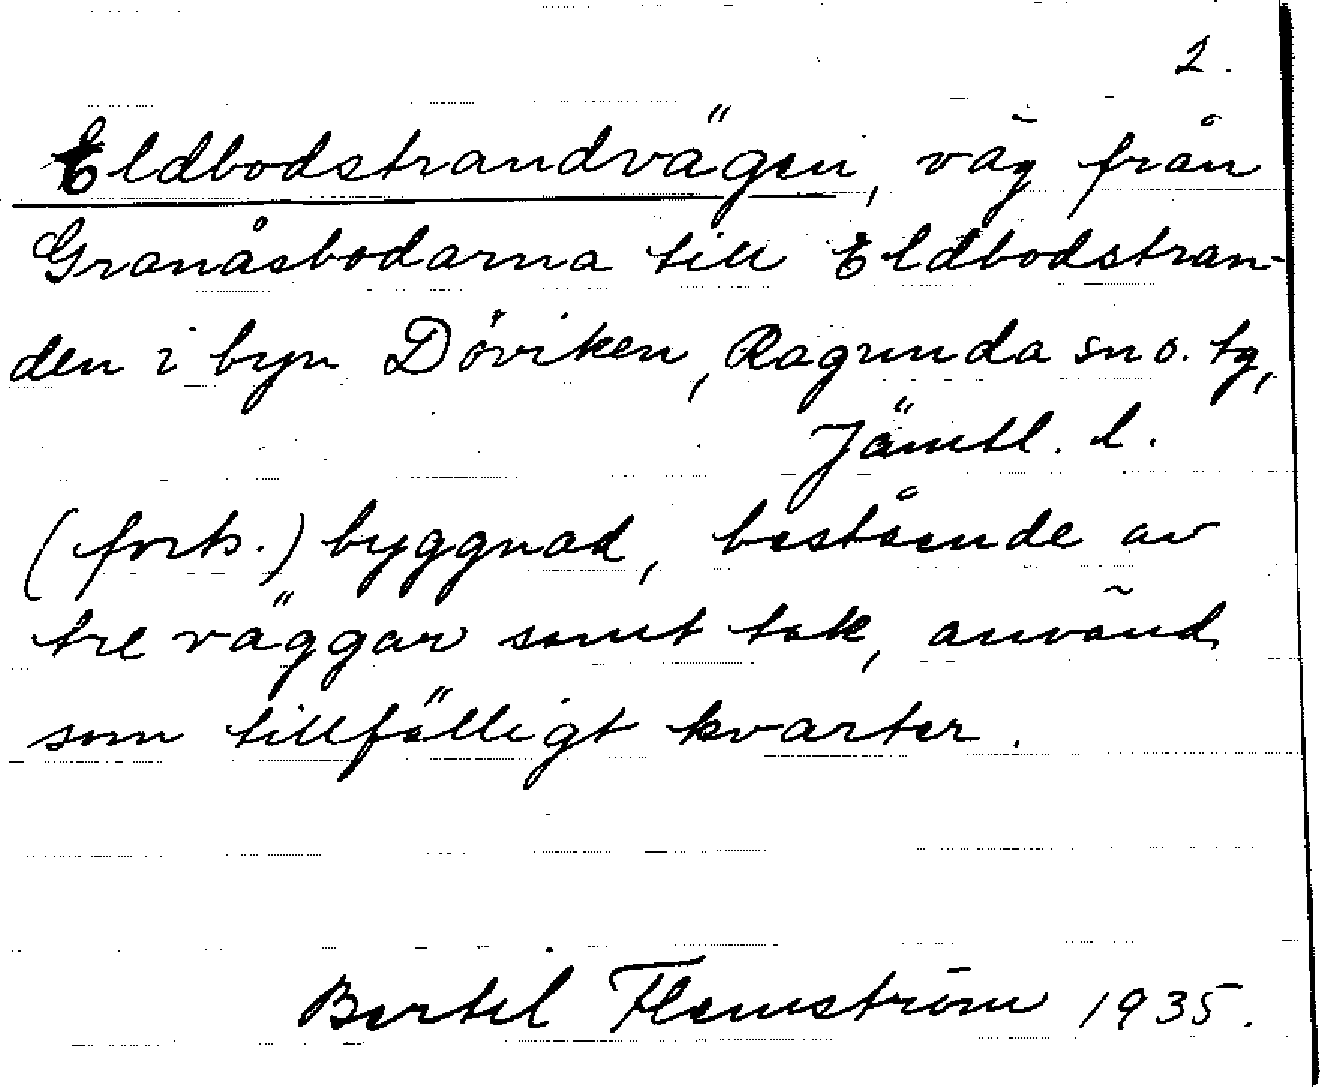 2.
Eldbodstrandvägen, väg från
Granåsbodarna till Eldbodstran-
den i byn Döviken, Ragunda sn o. tg,
Jämtl. l.
(forts.) byggnad, bestående av
tre väggar samt tak, använd
som tillfälligt kvarter.
Bertil Flemström 1935.